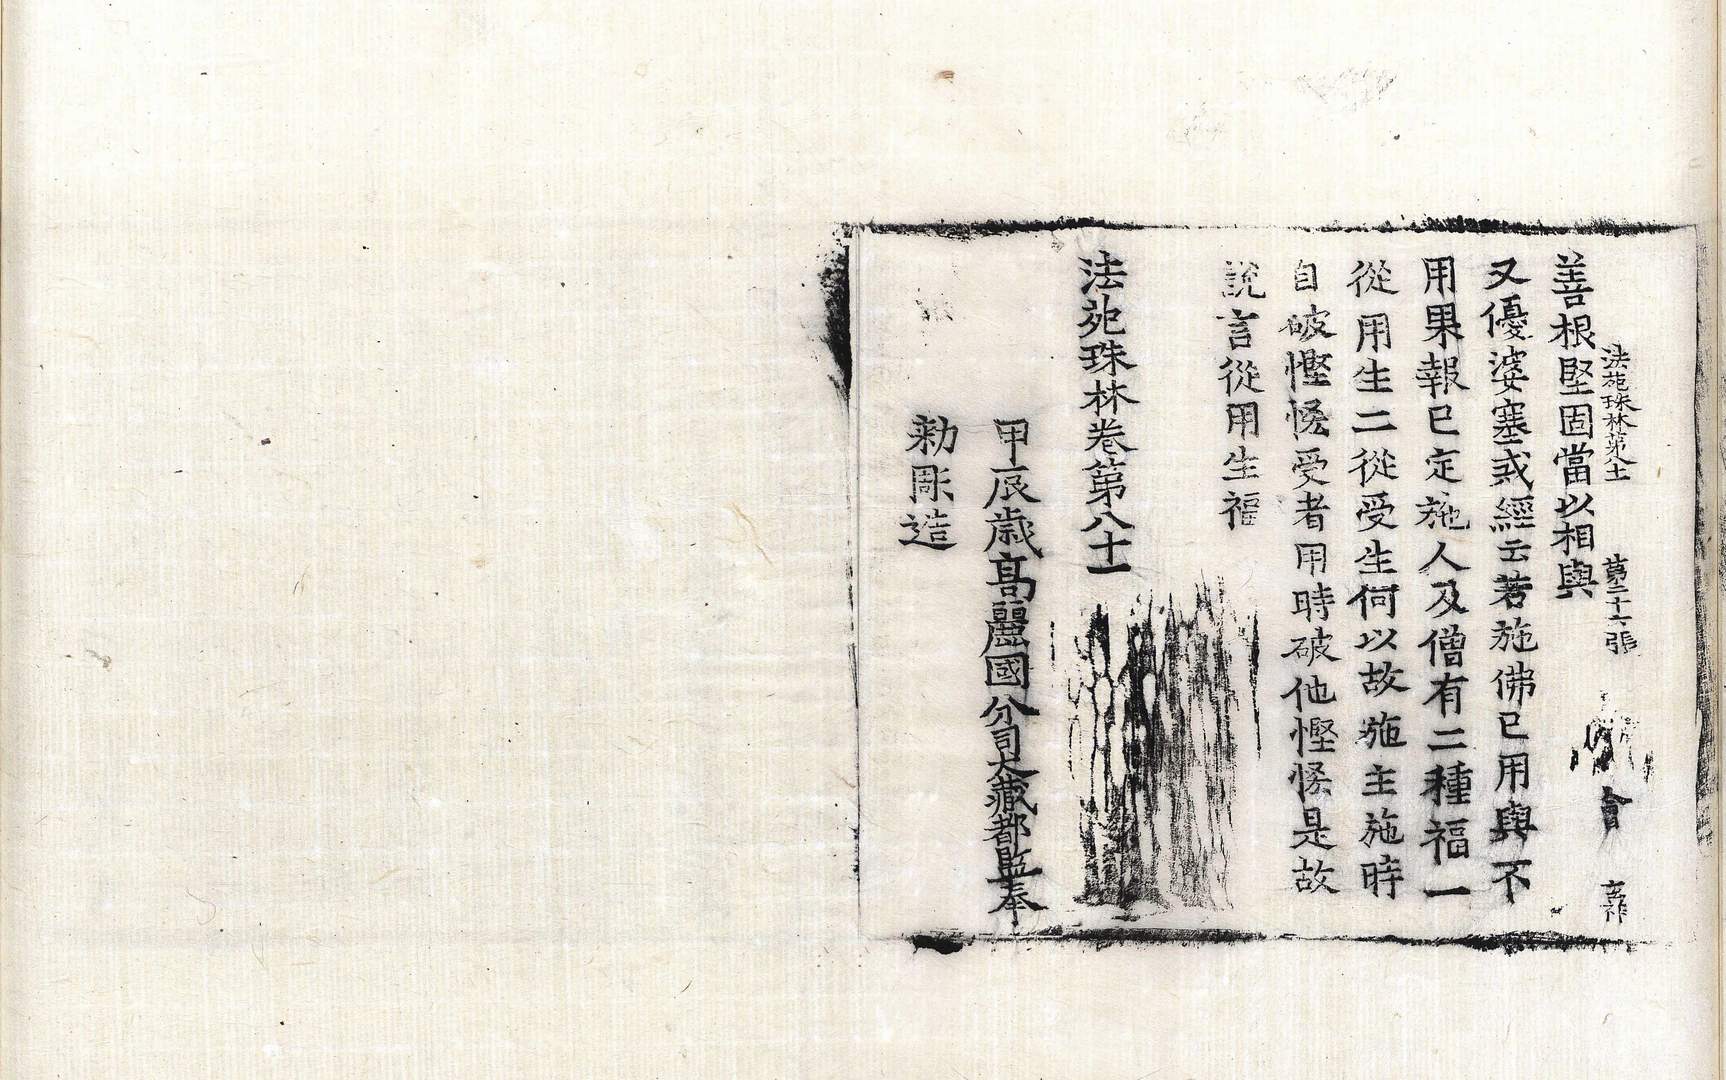 法苑珠林第八十一 第二十六張 會
善根堅固當以相與
又優婆塞戒經云若施佛已用與不
用果報已定施人及僧有二種福一
從用生二從受生何以故施主施時
自破慳悋受者用時破他慳悋是故
說言從用生福
法苑珠林卷第八十一
甲辰歲高麗國分司大藏都監奉
勑雕造